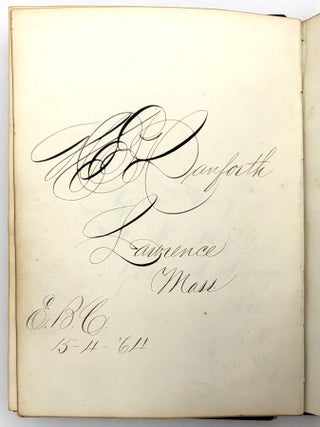 Danforth
Lawrence
Mass
E.B.C.
15-4-'64